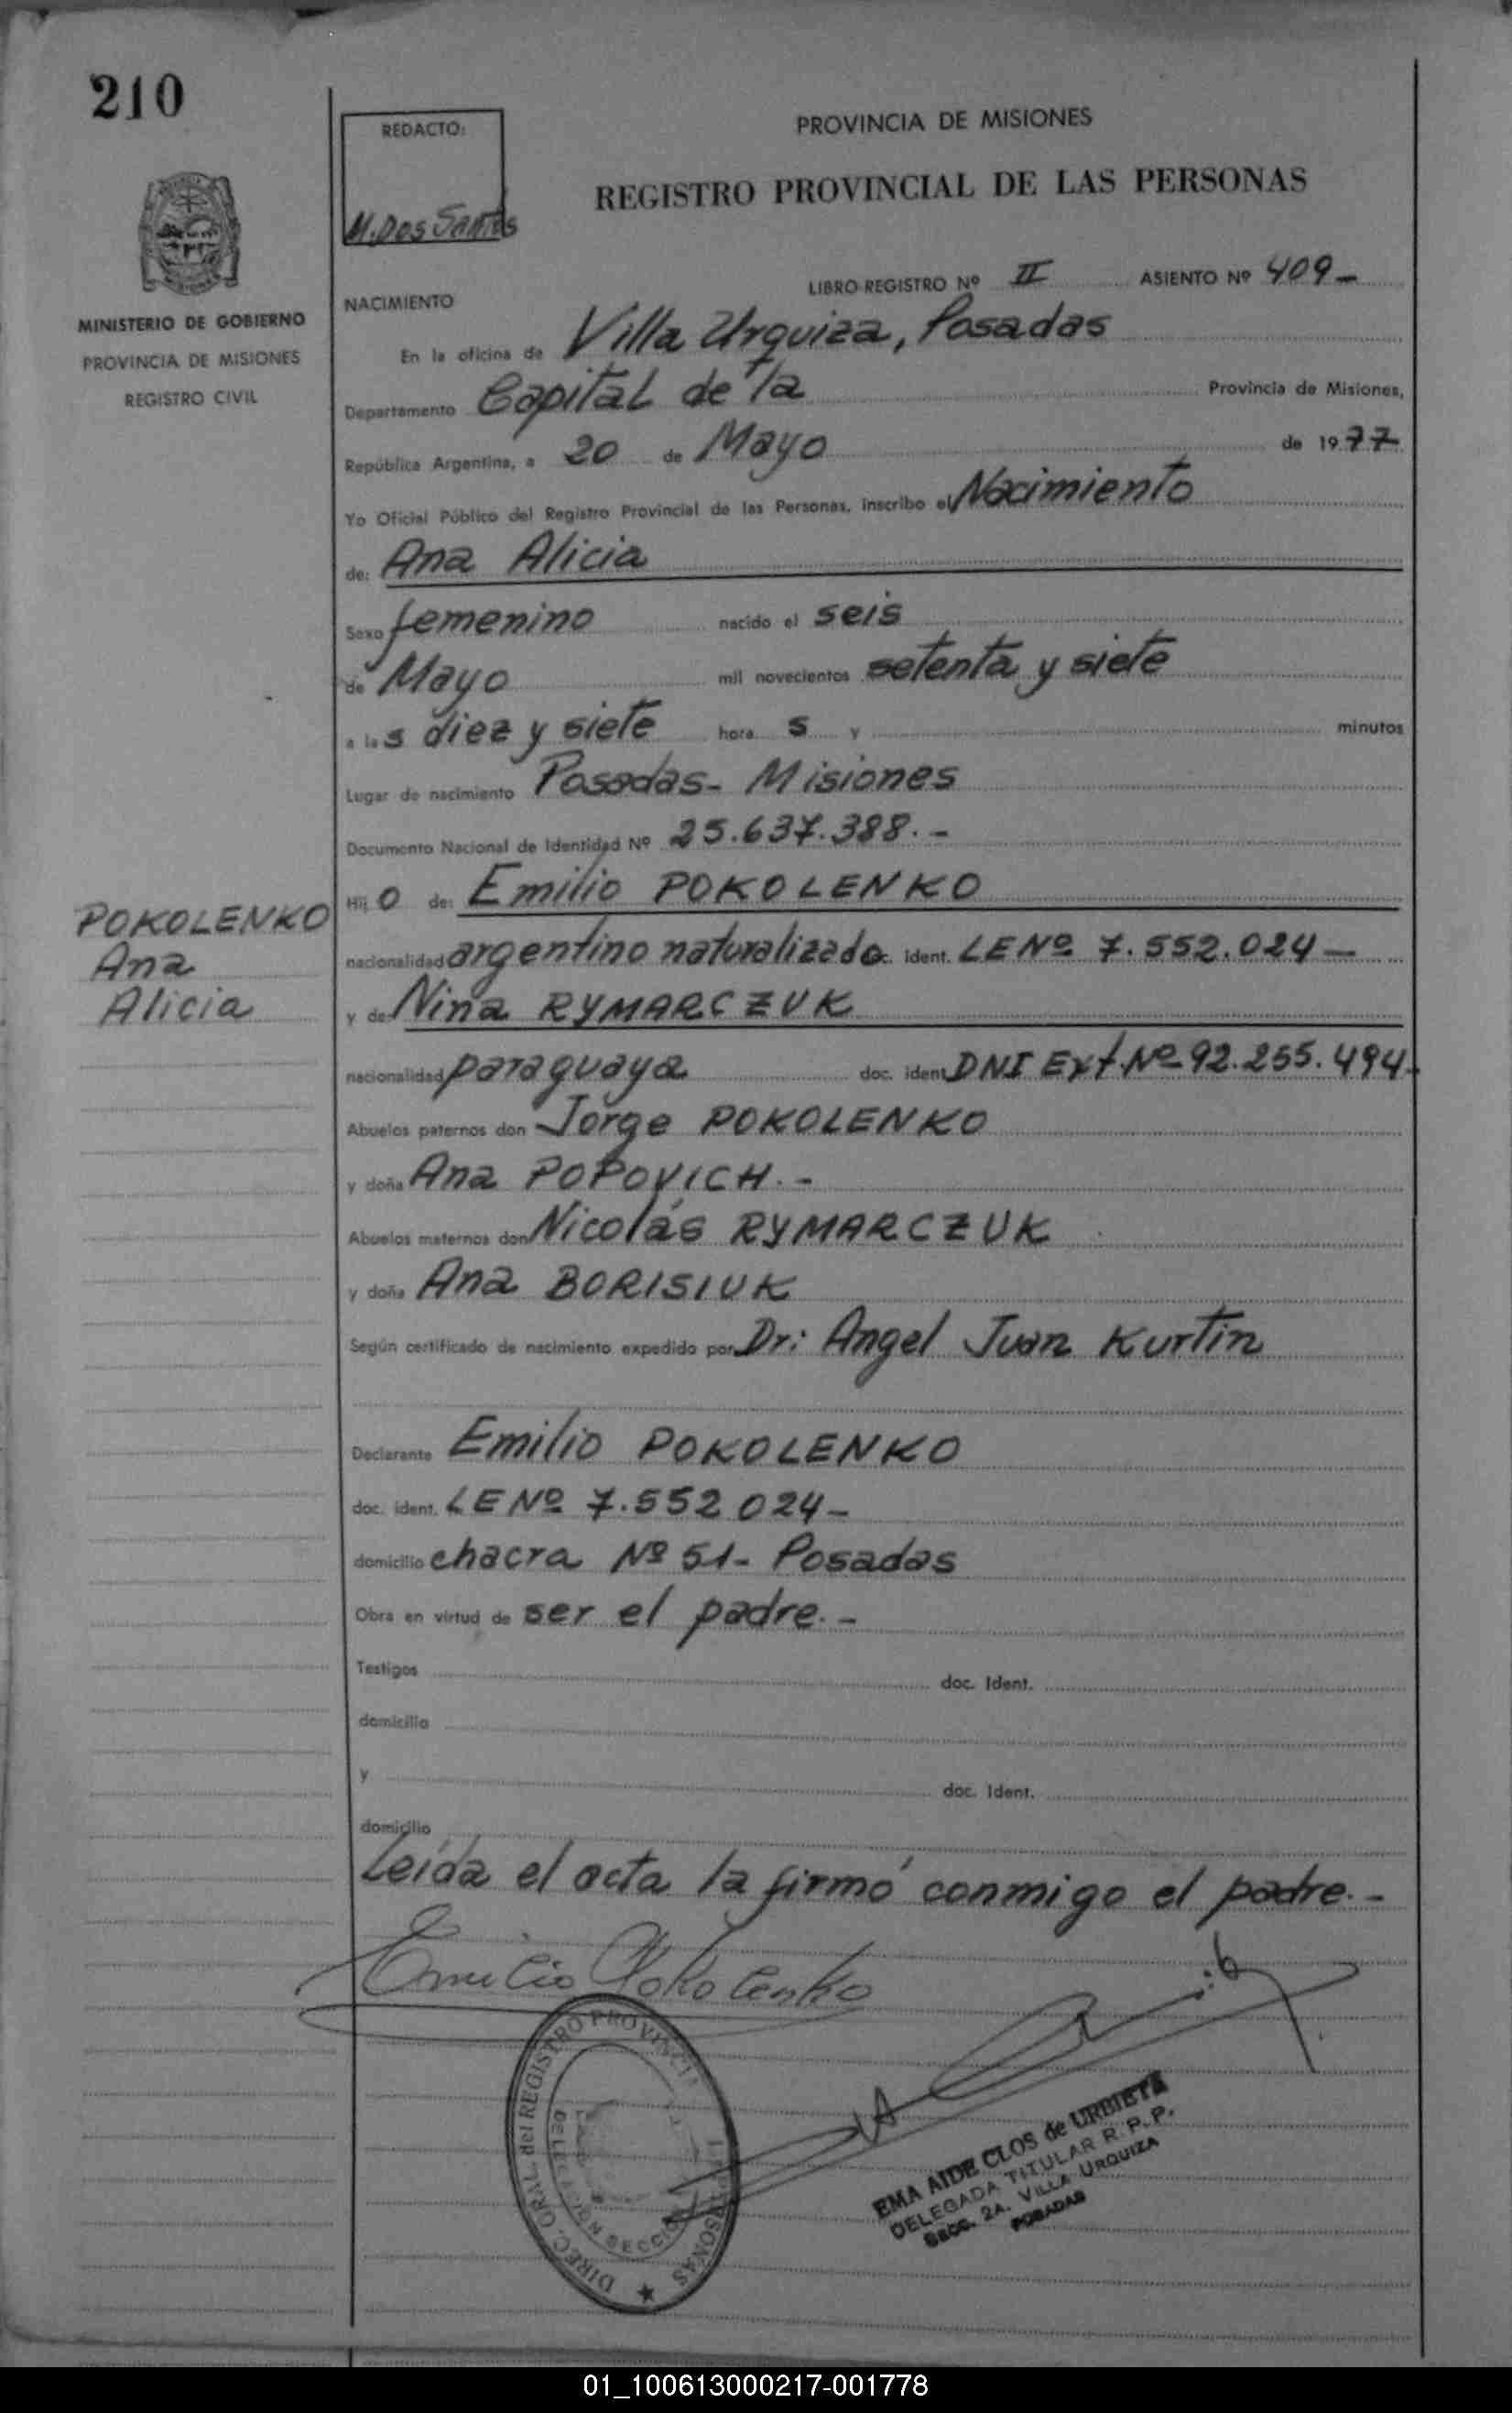 210
REDACTO:
M. Dos Santos
PROVINCIA DE MISIONES
REGISTRO PROVINCIAL DE LAS PERSONAS
MINISTERIO DE GOBIERNO
PROVINCIA DE MISIONES
REGISTRO CIVIL
LIBRO REGISTRO Nº II ASIENTO Nº 409-
NACIMIENTO
En la oficina de Villa Urquiza, Posadas
Departamento Capital de la Provincia de Misiones,
República Argentina, a 20 de Mayo de 1977
Yo Oficial Público del Registro Provincial de las Personas, inscribo el Nacimiento
de: Ana Alicia
Sexo femenino nacido el seis
de Mayo mil novecientos setenta y siete
a las diez y siete hora s y minutos
Lugar de nacimiento Posadas- Misiones
Documento Nacional de Identidad Nº 25.637.388.-
POKOLENKO
Ana
Alicia
Hij o de: Emilio POKOLENKO
nacionalidad argentino naturalizado. ident. LE Nº 7.552.024-
y de Nina RYMARCZUK
nacionalidad paraguaya doc. ident. DNI Ext. Nº 92.255.494-
Abuelos paternos don Jorge POKOLENKO
y doña Ana POPOVICH.-
Abuelos maternos don Nicolás RYMARCZUK
y doña Ana BORISIUK
Según certificado de nacimiento expedido por Dr: Angel Juan Kurtin
Declarante Emilio POKOLENKO
doc. ident. LE Nº 7.552 024-
domicilio chacra Nº 51- Posadas
Obra en virtud de ser el padre.-
Testigos doc. Ident.
domicilio
y doc. Ident.
domicilio
Leída el acta la firmó conmigo el padre.-
Emilio Pokolenko
DIREC. GRAL. del REGISTRO PROVINCIAL PERSONAS
DELEGACION SECCION
EMA AIDE CLOS de URBIETA
DELEGADA TITULAR R. P. P.
SECC. 2A. VILLA URQUIZA
POSADAS
01_100613000217-001778